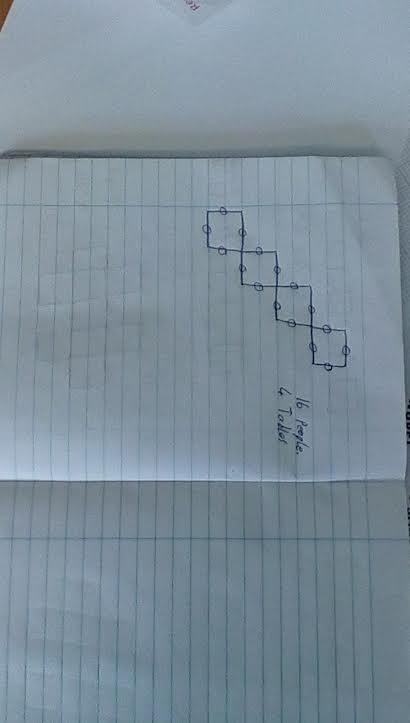 16 People.
4 Tables